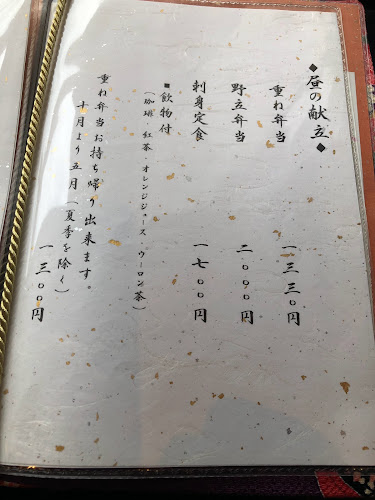 ◆昼の献立◆
重ね弁当 一三三〇円
野立弁当 二〇〇〇円
刺身定食 一七〇〇円
■飲物付
(珈琲・紅茶・オレンジジュース・ウーロン茶)
重ね弁当お持ち帰り出来ます。
十月より五月(夏季を除く)
一三〇〇円